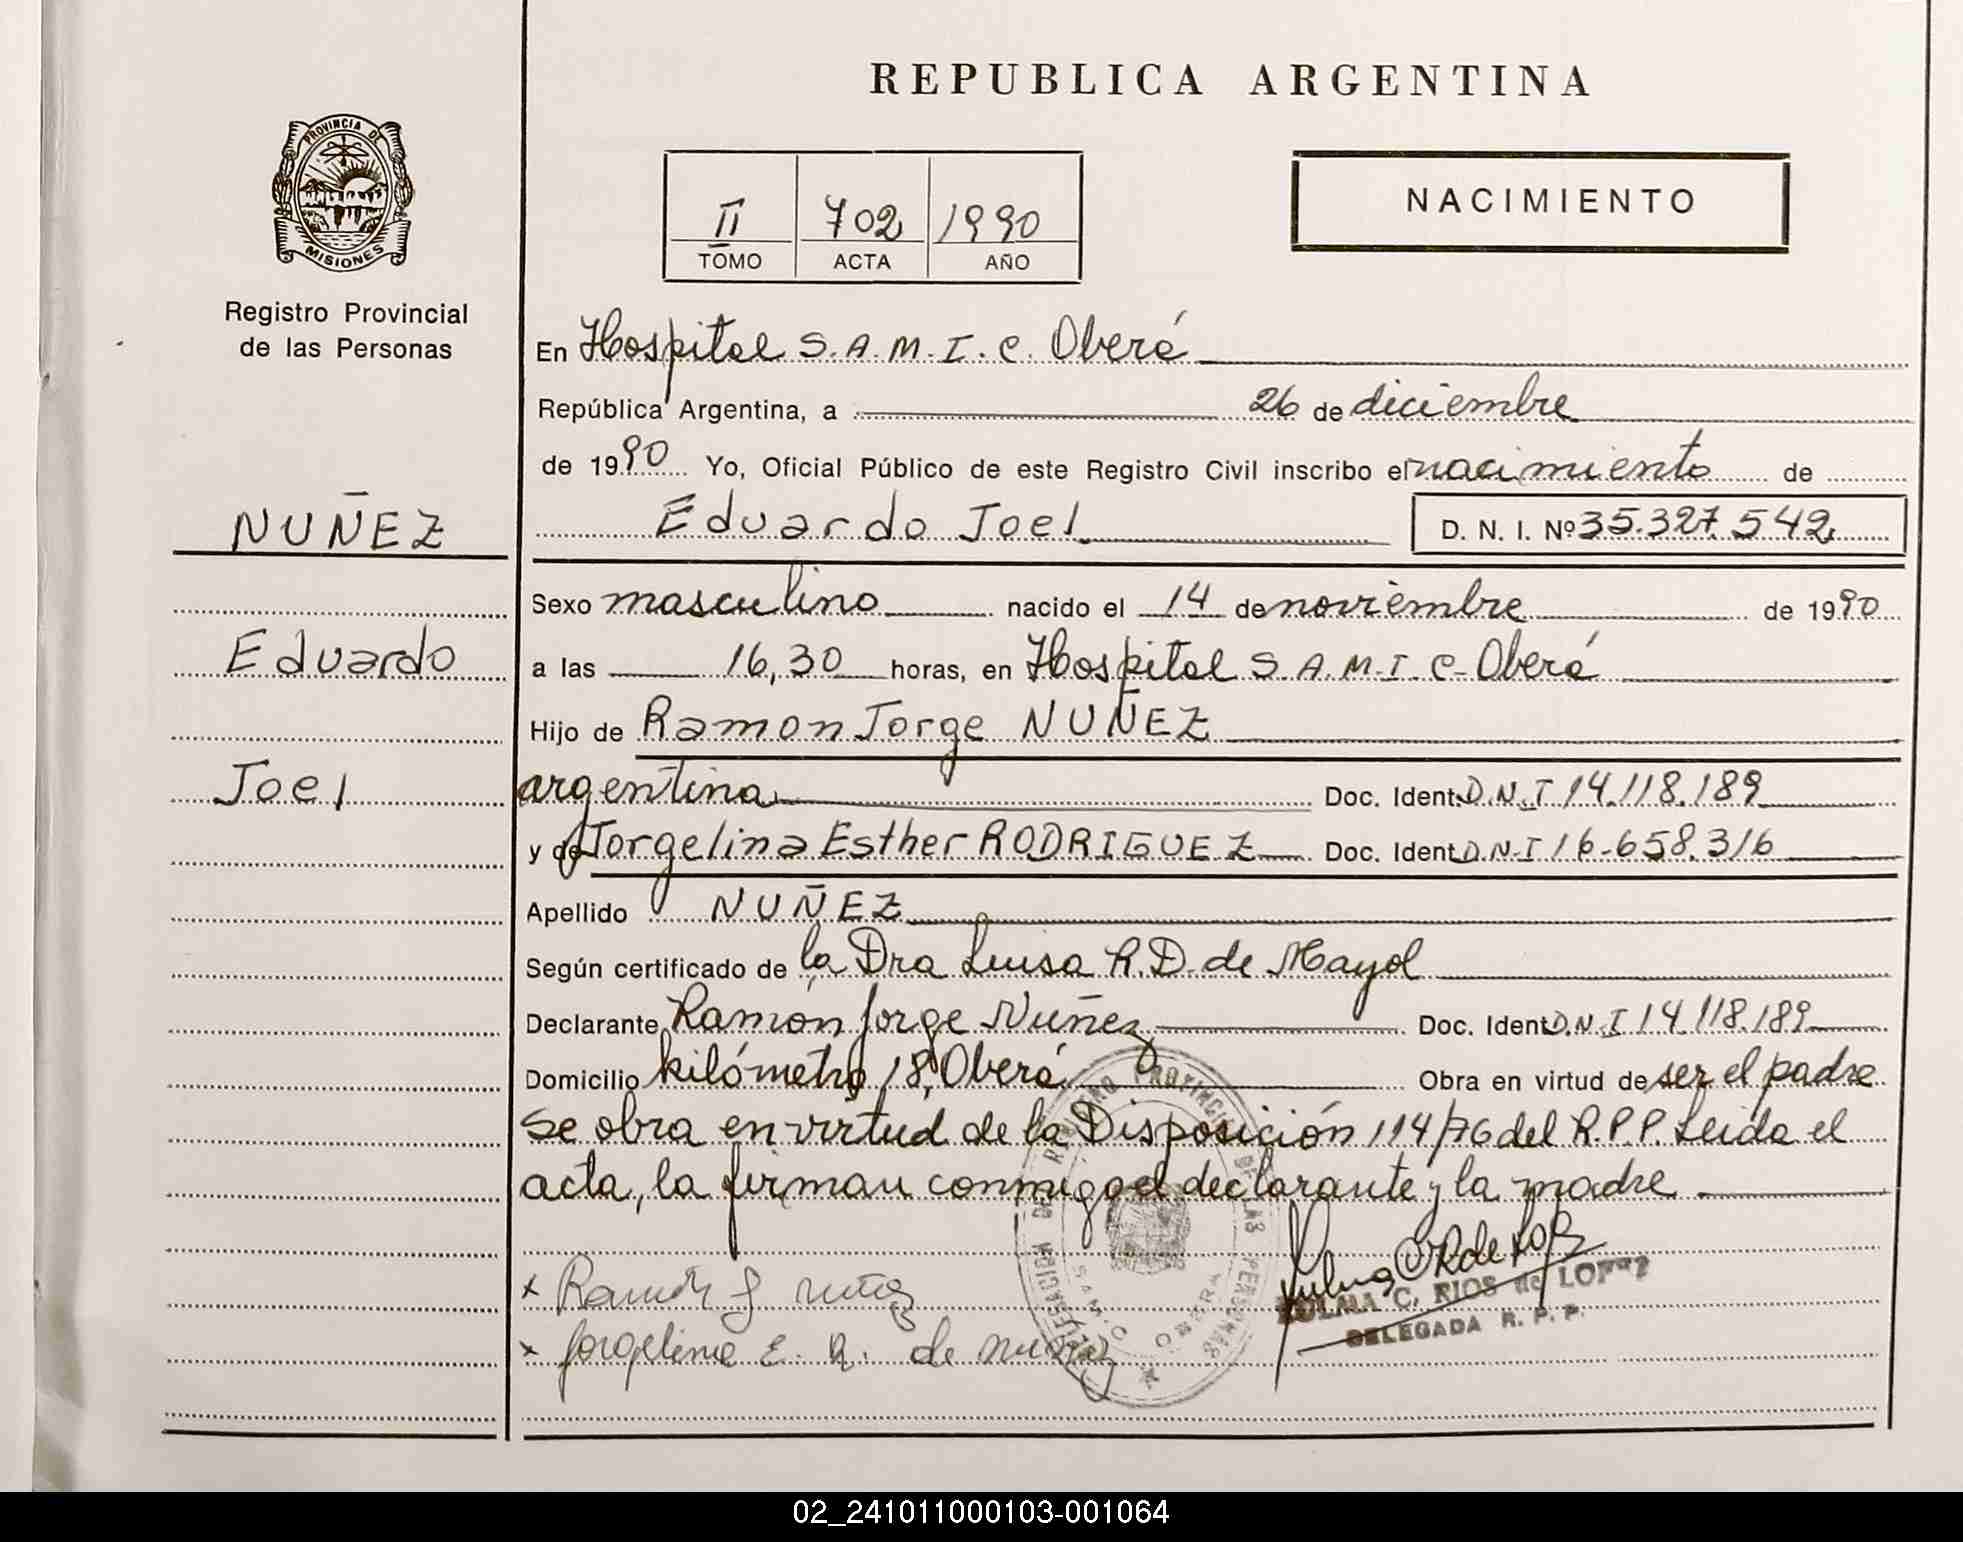 REPUBLICA ARGENTINA
PROVINCIA DE
MISIONES
Registro Provincial
de las Personas
II 702 1990
TOMO ACTA AÑO
NACIMIENTO
En Hospital S.A.M.I.C. Oberá
República Argentina, a 26 de diciembre
de 1990 Yo, Oficial Público de este Registro Civil inscribo el nacimiento de
NUÑEZ
Eduardo Joel D. N. I. Nº 35.327.542
Sexo masculino nacido el 14 de noviembre de 1990
Eduardo
a las 16,30 horas, en Hospital S.A.M.I.C- Oberá
Hijo de Ramon Jorge NUÑEZ
Joel
argentina Doc. Ident. D.N.I 14.118.189
y de Jorgelina Esther RODRIGUEZ Doc. Ident. D.N.I 16.658.316
Apellido NUÑEZ
Según certificado de la Dra Luisa R.D. de Mayol
Declarante Ramón Jorge Nuñez Doc. Ident. D.N.I 14.118.189
Domicilio kilómetro 18, Oberá Obra en virtud de ser el padre
Se obra en virtud de la Disposición 114/76 del R.P.P. Leida el
acta, la firman conmigo el declarante y la madre
x Ramón J Nuñez
x Jorgelina E. R. de Nuñez
ZULMA C. RIOS de LOPEZ
DELEGADA R. P. P.
REGISTRO PROVINCIAL DE LAS PERSONAS
SAMIC OBERA
02_241011000103-001064